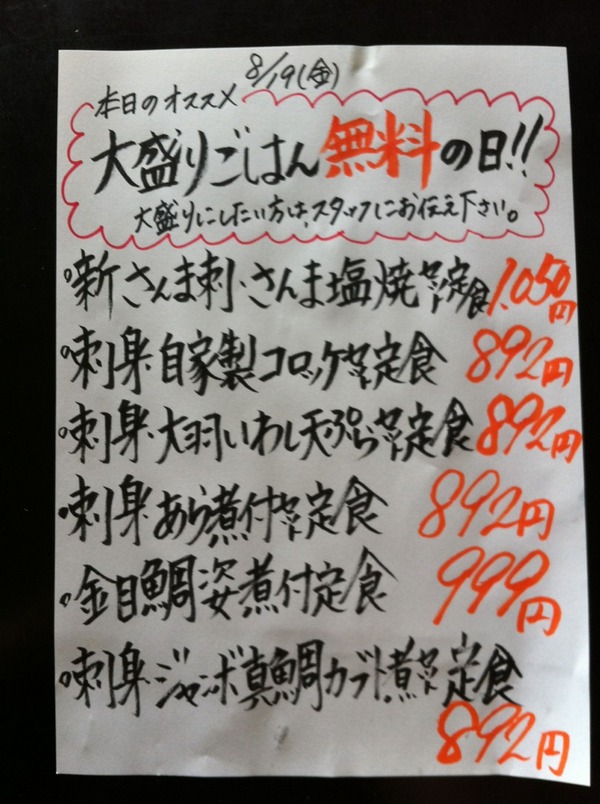 8/19(金)
本日のオススメ
大盛りごはん無料の日!!
大盛りにしたい方は、スタッフにお伝え下さい。
。新さんま刺・さんま塩焼セット定食 1,050円
。刺身・自家製コロッケセット定食 892円
。刺身・大羽いわし天ぷらセット定食 892円
。刺身・あら煮付セット定食 892円
。金目鯛姿煮付定食 999円
。刺身・ジャンボ真鯛カブト煮セット定食
892円